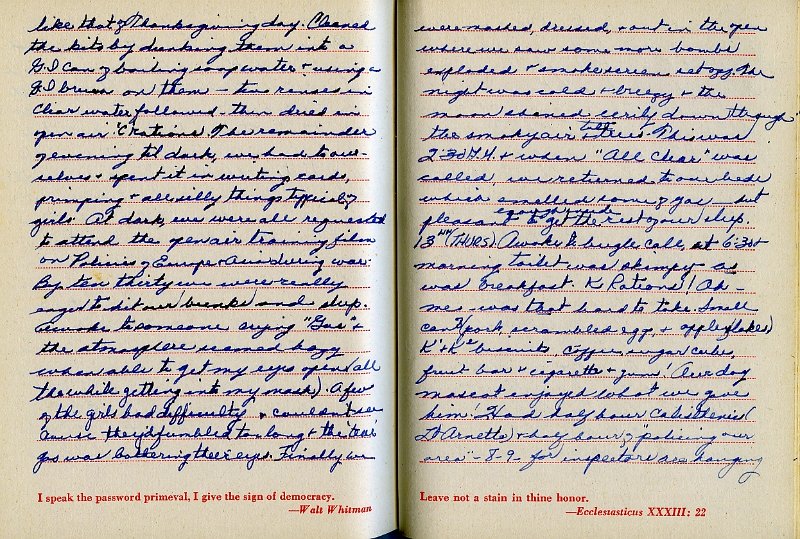 like that of Thanksgiving day. Cleaned
the kits by dunking them into a
G.I Can of boiling soap water & using a
G.I brush on them – two rinses in
clear water followed then dried in
open air. 'C' rations. The remainder
of evening til dark, we had to our-
selves & spent it in writing cards,
primping & all silly things typical of
girls. At dark, we were all requested
to attend the open air training film
on Policies of Europe & Aims during war.
By ten thirty we were really
eager to hit our bunks and sleep.
Awoke to someone crying "Gas" &
the atmosphere seemed hazy
when able to get my eyes open (all
the while getting into my mask). A few
of the girls had difficulty & couldn't see
'cause they'd fumbled too long & the 'tear'
gas was bothering their eyes. Finally we
I speak the password primeval, I give the sign of democracy.
—Walt Whitman
were mashed, dressed, & out in the open
where we saw some more bombs
exploded & smoke screen set off. The
night was cold & breezy & the
moon shoned eerily down through
the smoky air & tall trees. This was
2:30 A.M. & when "All Clear" was
called, we returned to our beds
which smelled some of gas but
pleasant enough to get the rest of our sleep.
13TH (THURS) Awoke to bugle call, at 6:30 &
morning toilet was skimpy as
was breakfast. K Rations! Ah –
me was that hard to take. Small
can of (pork, scrambled egg, & apple flakes)
K'+K2 biscuits coffee, sugar cube,
fruit bar & cigarette & gum! Our dog
mascot enjoyed what we gave
him. Had half hour Calisthenics (
Lt Arnette) & half hour of "policing our
area" – 8-9 – for inspectors are hanging
Leave not a stain in thine honor.
—Ecclesiasticus XXXIII: 22